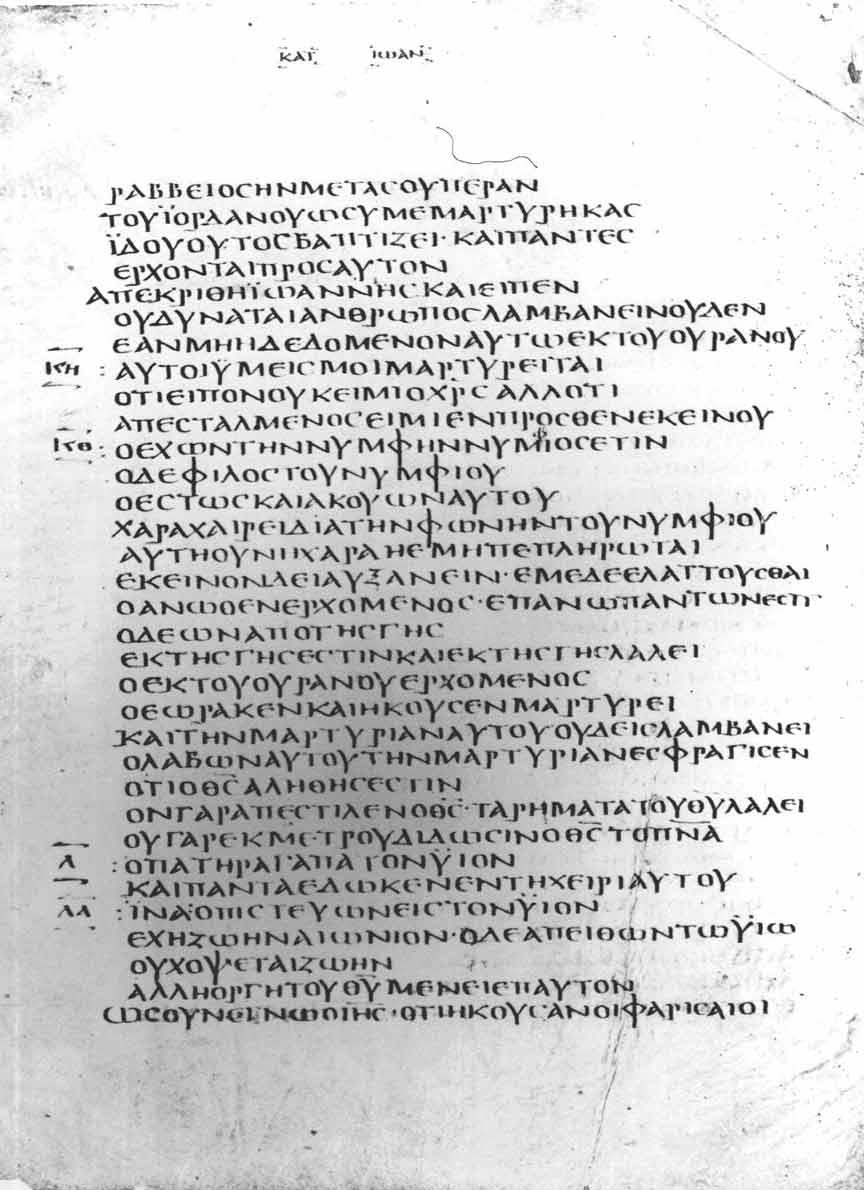 ΚΑΤ ΙΩΑΝ
ΡΑΒΒΕΙΟСΗΝΜΕΤΑСΟΥΠΕΡΑΝ
ΤΟΥΪΟΡΔΑΝΟΥΩСΥΜΕΜΑΡΤΥΡΗΚΑС
ΪΔΟΥΟΥΤΟСΒΑΠΤΙΖΕΙ·ΚΑΙΠΑΝΤΕС
ΕΡΧΟΝΤΑΙΠΡΟСΑΥΤΟΝ
ΑΠΕΚΡΙΘΗΪΩΑΝΝΗСΚΑΙΕΙΠΕΝ
ΟΥΔΥΝΑΤΑΙΑΝΘΡΩΠΟСΛΑΜΒΑΝΕΙΝΟΥΔΕΝ
ΕΑΝΜΗΗΔΕΔΟΜΕΝΟΝΑΥΤΩΕΚΤΟΥΟΥΡΑΝΟΥ
:ΑΥΤΟΙΫΜΕΙСΜΟΙΜΑΡΤΥΡΕΙΤΑΙ
ΟΤΙΕΙΠΟΝΟΥΚΕΙΜΙΟΧΡСΑΛΛΟΤΙ
ΑΠΕСΤΑΛΜΕΝΟСΕΙΜΙΕΝΠΡΟСΘΕΝΕΚΕΙΝΟΥ
:ΟΕΧΩΝΤΗΝΝΥΜΦΗΝΝΥΜΦΙΟСΕΤΙΝ
ΟΔΕΦΙΛΟСΤΟΥΝΥΜΦΙΟΥ
ΟΕСΤΩСΚΑΙΑΚΟΥΩΝΑΥΤΟΥ
ΧΑΡΑΧΑΙΡΕΙΔΙΑΤΗΝΦΩΝΗΝΤΟΥΝΥΜΦΙΟΥ
ΑΥΤΗΟΥΝΗΧΑΡΑΗΕΜΗΠΕΠΛΗΡΩΤΑΙ
ΕΚΕΙΝΟΝΔΕΙΑΥΞΑΝΕΙΝ·ΕΜΕΔΕΕΛΑΤΤΟΥСΘΑΙ
ΟΑΝΩΘΕΝΕΡΧΟΜΕΝΟС·ΕΠΑΝΩΠΑΝΤΩΝΕСΤΙ
ΟΔΕΩΝΑΠΟΤΗСΓΗС
ΕΚΤΗСΓΗСΕСΤΙΝΚΑΙΕΚΤΗСΓΗСΛΑΛΕΙ
ΟΕΚΤΟΥΟΥΡΑΝΟΥΕΡΧΟΜΕΝΟС
ΟΕΩΡΑΚΕΝΚΑΙΗΚΟΥСΕΝΜΑΡΤΥΡΕΙ
ΚΑΙΤΗΝΜΑΡΤΥΡΙΑΝΑΥΤΟΥΟΥΔΕΙСΛΑΜΒΑΝΕΙ
ΟΛΑΒΩΝΑΥΤΟΥΤΗΝΜΑΡΤΥΡΙΑΝΕСΦΡΑΓΙСΕΝ
ΟΤΙΟΘСΑΛΗΘΗСΕСΤΙΝ
ΟΝΓΑΡΑΠΕСΤΙΛΕΝΟΘС·ΤΑΡΗΜΑΤΑΤΟΥΘΥΛΑΛΕΙ
ΟΥΓΑΡΕΚΜΕΤΡΟΥΔΙΔΩСΙΝΟΘСΤΟΠΝΑ
Λ :ΟΠΑΤΗΡΑΓΑΠΑΤΟΝΫΙΟΝ
ΚΑΙΠΑΝΤΑΕΔΩΚΕΝΕΝΤΗΧΕΙΡΙΑΥΤΟΥ
ΛΑ :ΪΝΑΟΠΙСΤΕΥΩΝΕΙСΤΟΝΫΙΟΝ
ΕΧΗΖΩΗΝΑΙΩΝΙΟΝ·ΟΔΕΑΠΕΙΘΩΝΤΩΫΙΩ
ΟΥΧΟΨΕΤΑΙΖΩΗΝ
ΑΛΛΗΟΡΓΗΤΟΥΘΥΜΕΝΕΙΕΠΑΥΤΟΝ
ΩСΟΥΝΕΓΝΩΟΙΗС·ΟΤΙΗΚΟΥСΑΝΟΙΦΑΡΙСΑΙΟΙ